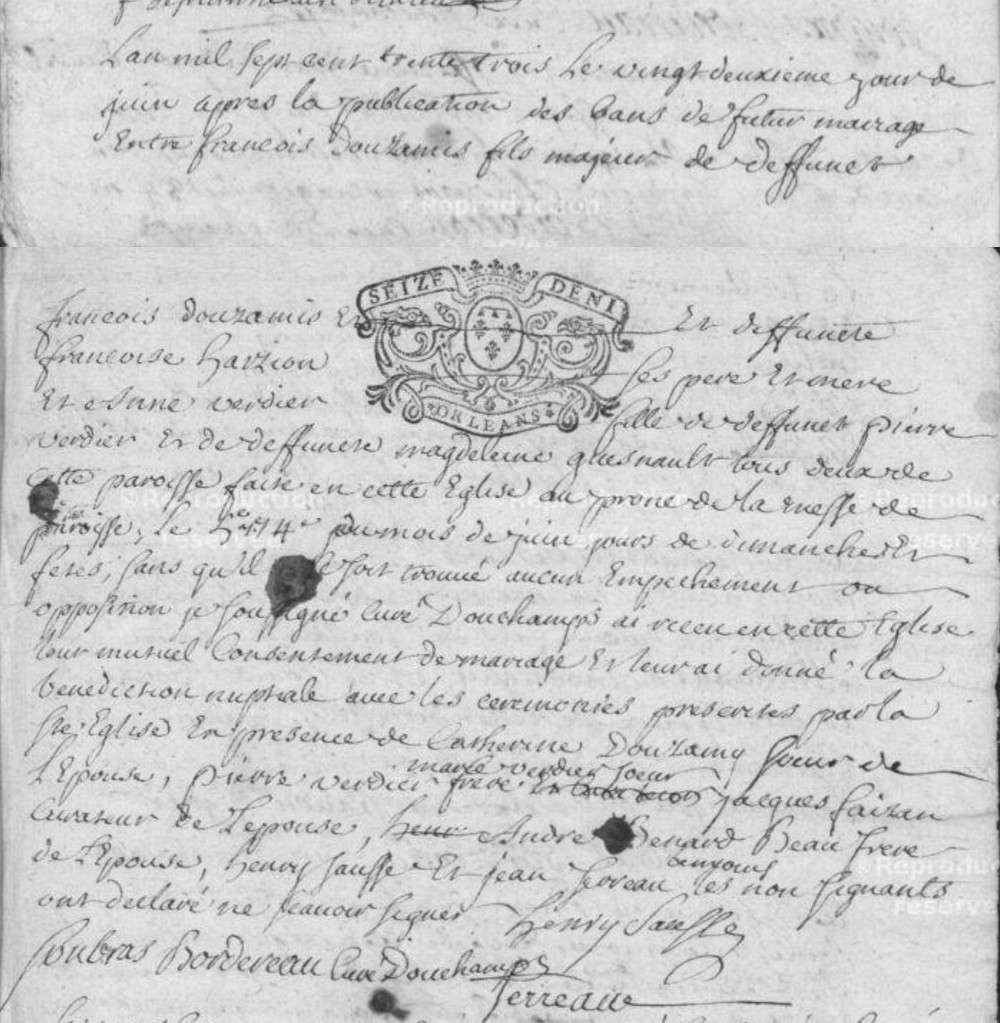 L'an mil sept cent trente trois Le vingt deuxieme jour de
juin apres la publication des bans de futur mariage
Entre francois Douzamis fils majeur de deffunct
SEIZE DENI
francois douzamis Et Et deffuncte
francoise harzion ses pere Et mere
ORLEANS
Et Anne verdier fille de deffunct pierre
verdier Et de deffuncte magdeleine quesnault tous deux de
cette paroisse faite en cette Eglise au prone de la messe de
paroisse, le 7e 14e du mois de juin jours de dimanches Et
fetes, sans qu'il se soit trouué aucun Empechement ou
opposition je soussigné Curé Douchamps ai receu en cette Eglise
leur mutuel Consentement de mariage Et leur ai donné la
benediction nuptiale auec les ceremonies prescrites par la
ste Eglise En presence de Catherine Douzamy soeur de
marie verdier soeur
L'Epouse, pierre verdier frere jacques faizan
Curateur de L'epouse, henr Andre Benard Beau frere
de L'Epouse, henry sausse Et jean les non signants
ont declaré ne scauoir signer henry Sausse
Soubras Bordereau Curé Douchamps
ferreau